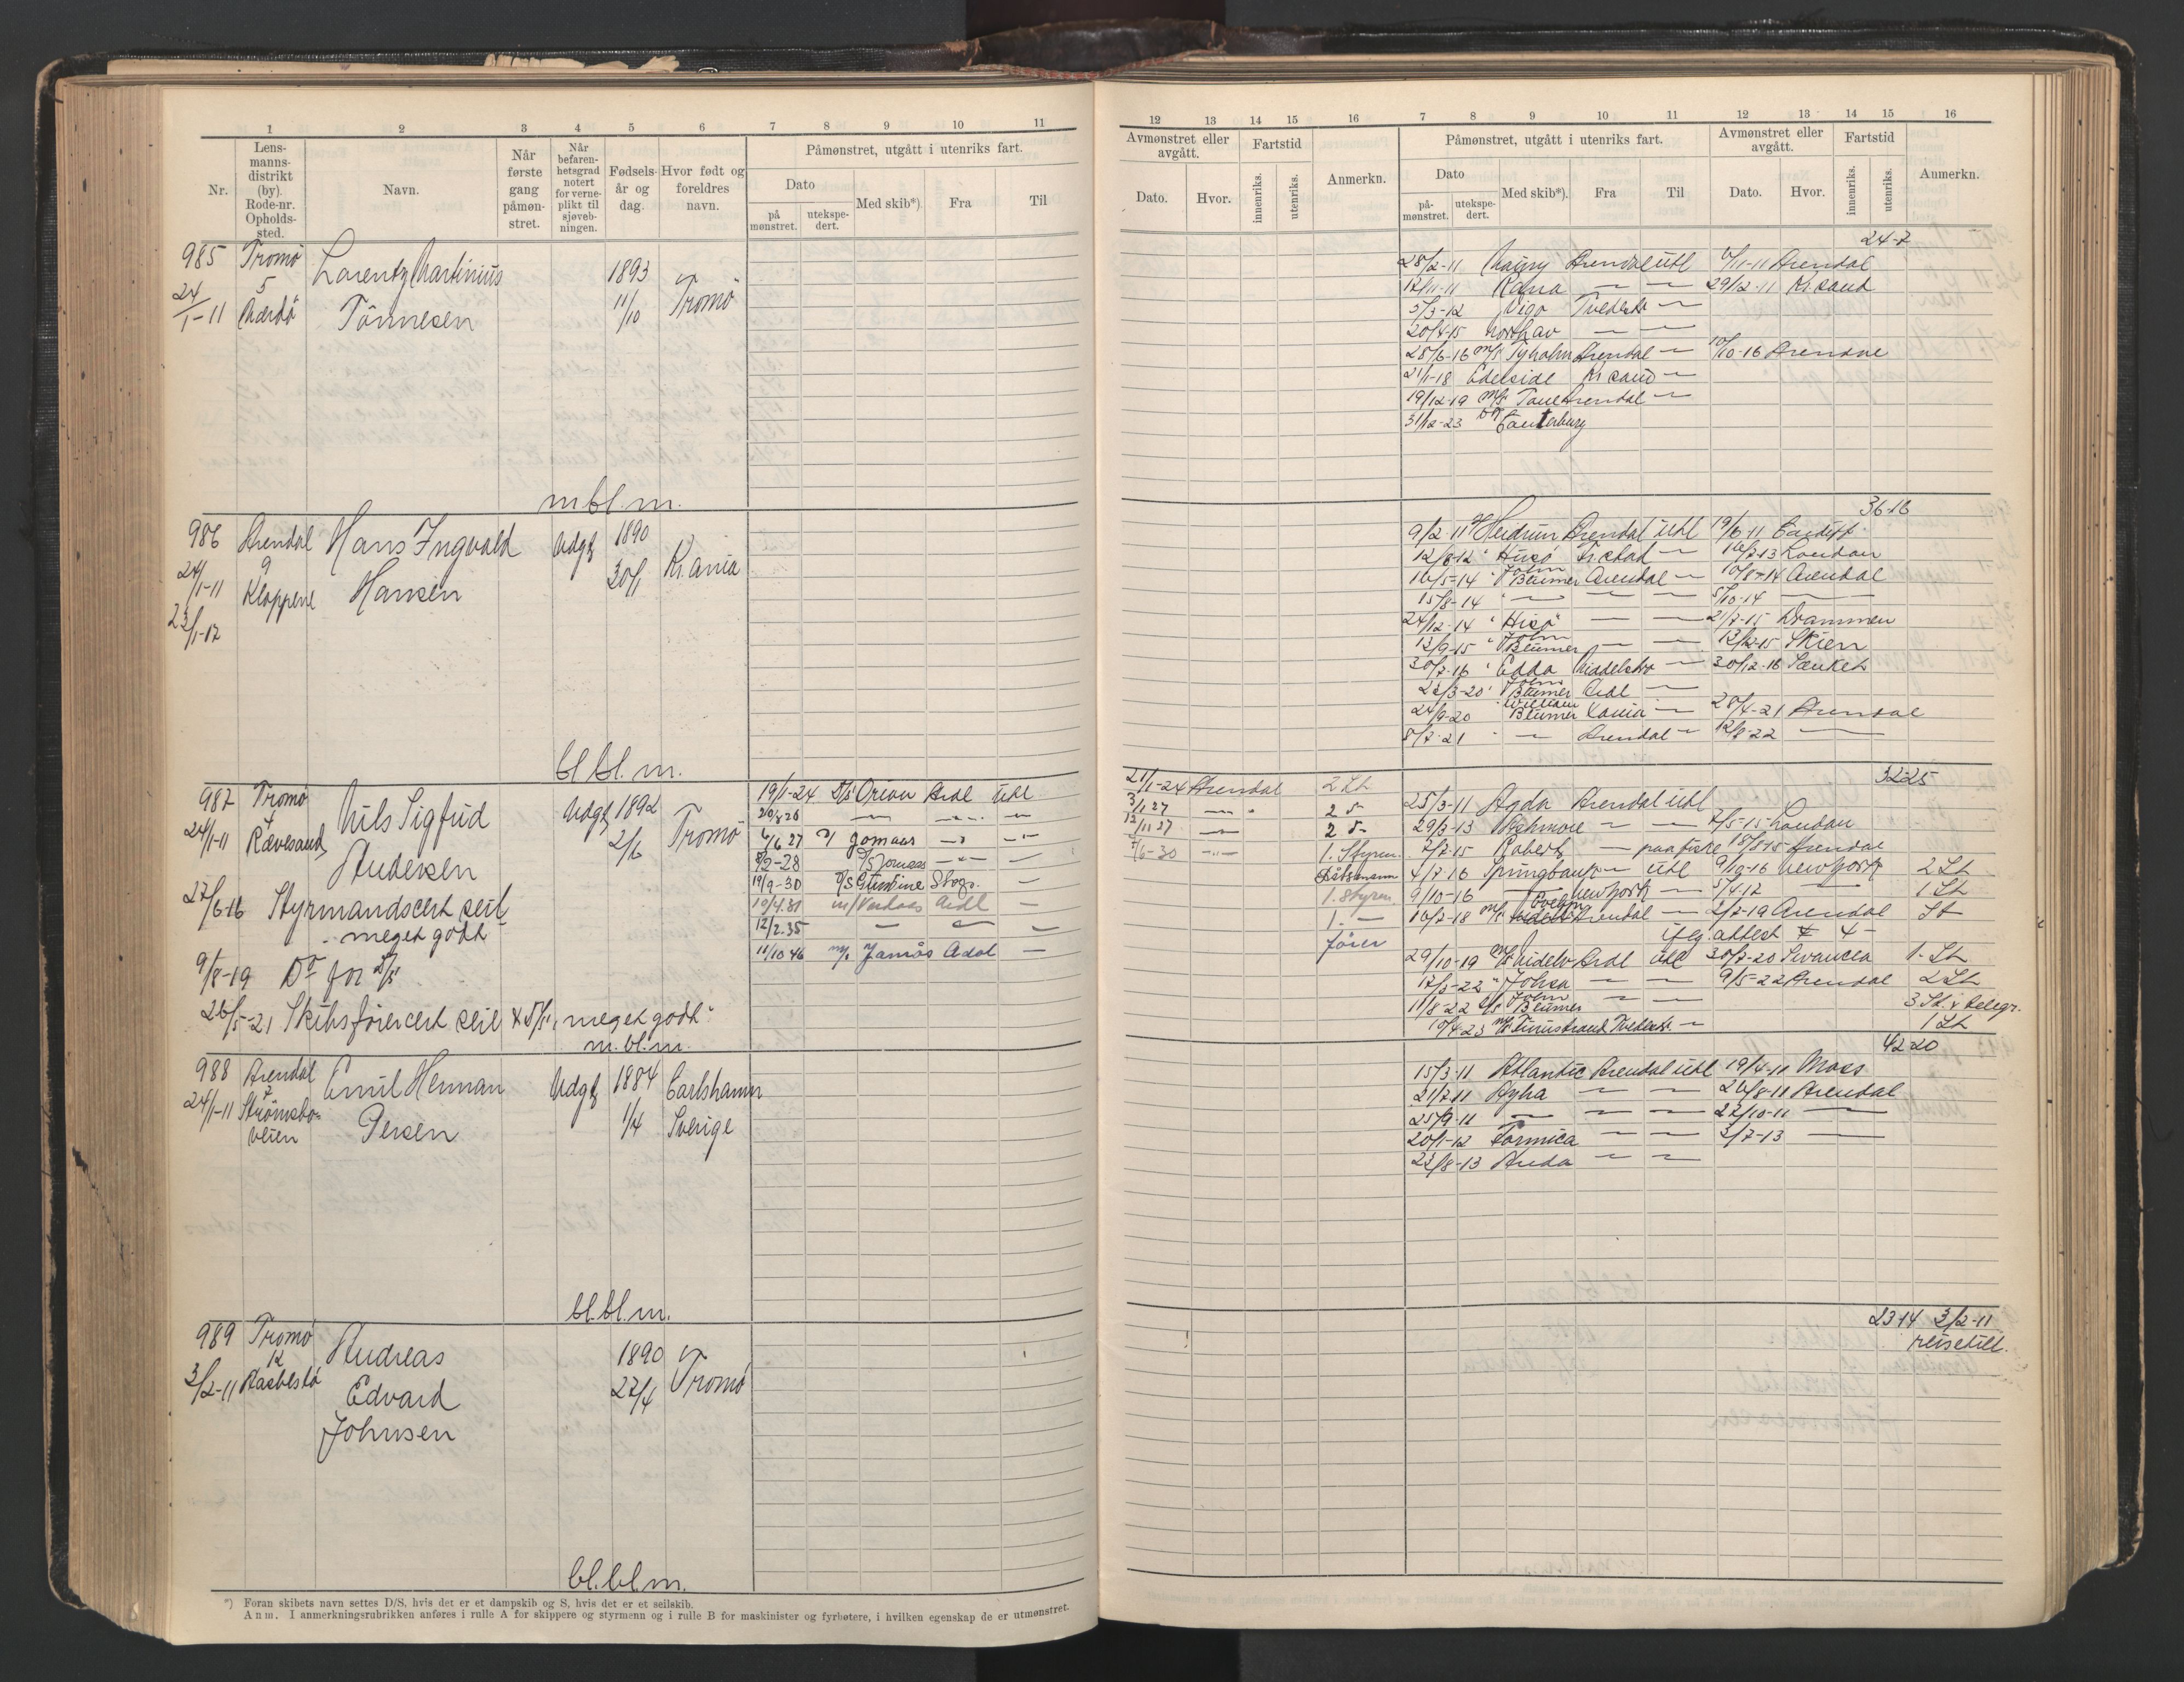 1 2 3 4 5 6 7 8 9 10 11
Nr.
Lens-
manns-
distrikt
(by).
Rode-nr.
Opholds-
sted.
Navn.
Når
første
gang
påmøn-
stret.
Når
befaren-
hetsgrad
notert
for verne-
plikt til
sjøveb-
ningen.
Fødsels-
år og
dag.
Hvor født og
foreldres
navn.
Påmønstret, utgått i utenriks fart.
Dato
på
mønstret.
utekspe-
dert.
Med skib*).
Fra
Til
985 Tromø Lorentz Martinius 1893
24/1-11 5 Tønnesen 11/10 Tromø
Mærdø
m bl. m.
986 Arendal Hans Ingvald Udgt 1890
24/1-11 9 Hansen 30/1 Kr.ania
Kloppene
23/1-17
bl. bl. m.
987 Tromø Nils Sigfrid Udgt 1892 Tromø
24/1-11 Rævesand Andersen 2/6
27/6-16 Styrmandscert seil
meget godt
9/8-19 Do for D/S
26/5-21 Skibsførercert seil & D/S "meget godt"
m. bl. m.
19/1-24 D/S Orion Ardl Utl
20/8 26 — —
6/6 27 Jomaas — —
8/2-28 D/S Jomaas — —
19/9-30 D/S Gundine Sbgs. —
10/4.31 m/ Ardl —
12/2.35 — — —
11/10 46 m/s Jamås Adal —
988 Arendal Emil Herman Udgt 1884 Carlshamn
24/1-11 7 Persen 1/4 Sverige
Strømsbo-
veien
bl. bl. m.
989 Tromø Andreas 1890
3/2-11 12 Edvard 27/4 Tromø
Johnsen
bl. bl. m.
*) Foran skibets navn settes D/S, hvis det er et dampskib og S, hvis det er et seilskib.
Anm. I anmerkningsrubrikken anføres i rulle A for skippere og styrmenn og i rulle B for maskinister og fyrbøtere, i hvilken egenskap de er utmønstret.
12 13 14 15 16 7 8 9 10 11 12 13 14 15 16
Avmønstret eller
avgått.
Dato. Hvor.
Fartstid
innenriks. utenriks.
Anmerkn.
Påmønstret, utgått i utenriks fart.
Dato
på-
mønstret.
utekspe-
dert.
Med skib*). Fra Til
Avmønstret eller
avgått.
Dato. Hvor.
Fartstid
innenriks. utenriks.
Anmerkn.
24-7
28/2-11 Arendal Utl 6/11-11 Arendal
12/11-11 — — 29/12-11 Kr.sand
5/3-12 Vigo Tvedestr —
20/4-15 — —
28/6-16 m/s Tyholm Arendal — 10/10-16 Arendal
21/1-18 Ederside Kr.sand —
19/12-19 m/s Arendal —
31/12-23 D/S Canterburg
36-16
9/2-11 Heidrun Arendal Utl 19/6-11 Cardiff
12/8-12 " Hisø — 16/7-13 London
16/5-14 " John Blumer Arendal — 10/8-14 Arendal
15/8-14 " — — — 5/10-14 —
24/12-14 " Hisø — — 21/7-15 Drammen
12/9-15 " John Blumer — — 13/12-15 Skien
30/7-16 " Edda — 30/12-16 Sænket
22/3-20 " John Blumer Ardl —
24/9-20 " William Blumer Kania — 28/4-21 Arendal
8/7-21 " — Arendal — 12/8-22 —
32-25
21/1-24 Arendal 2 St
3/1 27 — " 2 S
12/11 27 — 2 S
7/6-30 — 1. Styrm.
Båtsmann
1. Styrm.
1. —
fører
25/3-11 Agda Arendal Utl
29/3-13 — — 7/5-15 London
7/7-15 Robert — paa fiske 18/8-15 Arendal
4/7-16 Springbank — Utl 9/10-16 Newyork 2 St
9/10-16 — Newyork — 5/4-17 — 1 St
16/7-18 m/s Arendal — 2/7-19 Arendal St
iflg. attest
29/10-19 Ardl Utl 30/7-20 Swansea 1. St
17/3-22 " Johsa — — 9/5-22 Arendal 2 St
11/8-22 John Blumer — — 3 St. & telegr.
10/4-23 m/s Furustrand Tvedestr. — 1 St
42-20
15/3-11 Atlantic Arendal Utl 19/4-11 Moss
21/7-11 — — 26/8-11 Arendal
25/9-11 — — — 27/10-11 —
20/1-12 Formica — — 3/7-13 —
22/8-13 — —
23-14 3/2-11
reisetill.